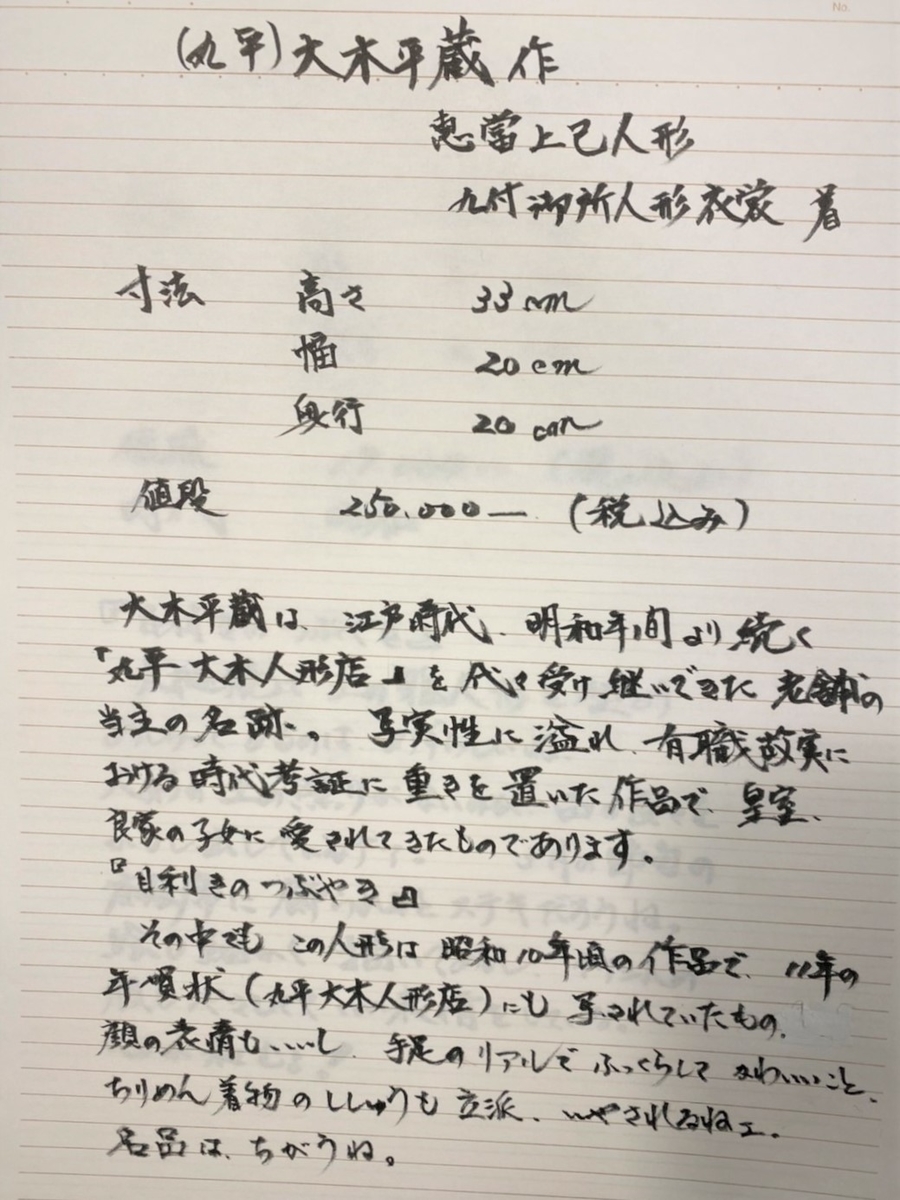 No.
(丸平)大木平蔵 作
恵當上己人形
九付御所人形衣裳 着
寸法 高さ 33cm
幅 20cm
奥行 20cm
値段 250.000— (税込み)
大木平蔵は、江戸時代、明和年間より続く
『丸平 大木人形店』を代々受け継いできた老舗の
当主の名跡。写実性に溢れ、有職故実に
おける時代考証に重きを置いた作品で、皇室、
良家の子女に愛されてきたものであります。
『目利きのつぶやき』
その中でも この人形は 昭和10年頃の作品で、11年の
年賀状(丸平大木人形店)にも写されていたもの、
顔の表情もいいし、手足のリアルでふっくらしてかわいいこと、
ちりめん着物のししゅうも立派、いやされるねェ、
名品は、ちがうね。